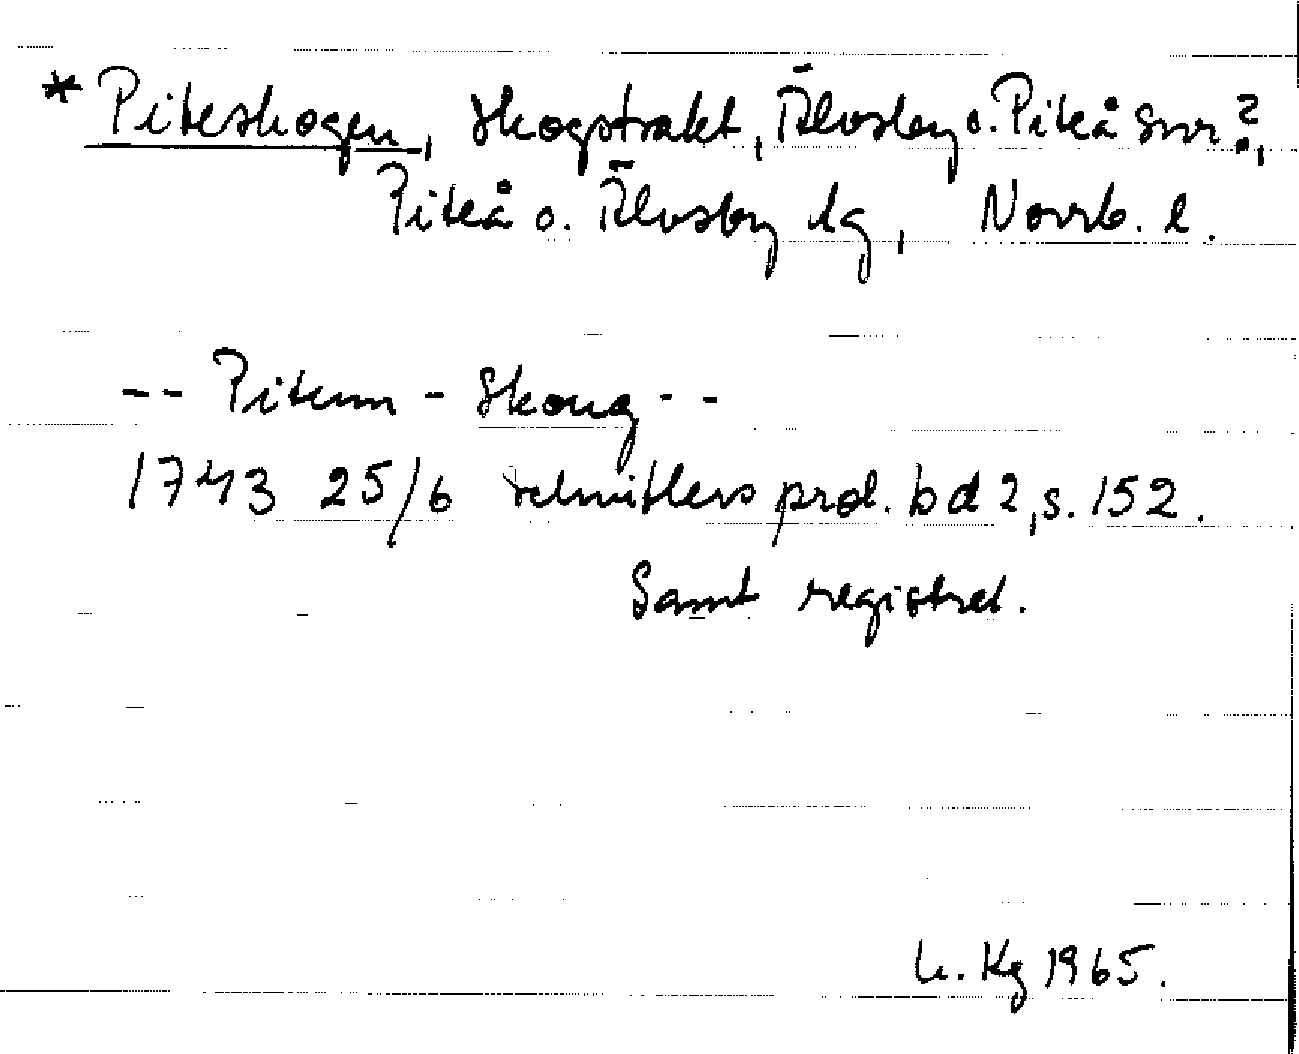 * Piteskogen, skogstrakt, Älvsby o. Piteå snr?,
Piteå o. Älvsby dg, Norrb. l.
-- Pitum - Skoug --
1743 25/6 Schnitlers prol. bd 2, s. 152.
Samt registret.
h. Kg 1965.